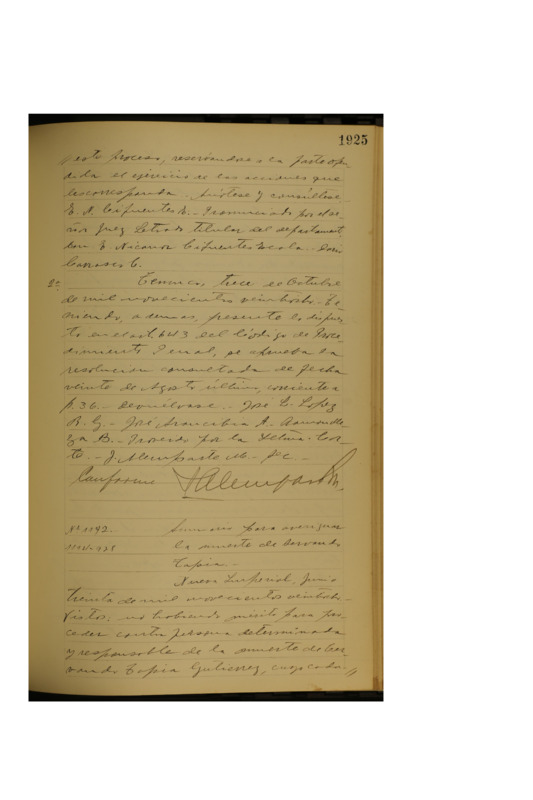 1925
// este proceso, reservándose a la parte ofen
dida el ejercicio de las acciones que
les corresponda. Anótese y consúltese
E. N. Cifuentes E. - Pronunciado por el se
ñor Juez Letrado titular del departament
don E. Nicanor Cifuentes
Carrasco C.
2º Temuco, trece de Octubre
de mil novecientos veintiocho. Te
niendo, ademas, presente lo dispues
to en el art. 643 del Código de Proce
dimiento Penal, se aprueba la
resolucion consultada de fecha
veinte de Agosto último, corriente a
f. 36. - Devuélvase. - José L. Lopez
R. G. - José Arancibia A.
B. - Proveido por la Iltma. Cor
te. - J. Alemparte M. - Sec. -
Conforme J Alemparte M.
Nº 1192. Sumario para averiguar
la muerte de Servando
Tapia. -
Nueva Imperial, Junio
treinta de mil novecientos veintiocho.
Vistos: no habiendo mérito para pro
ceder contra persona determinada
y responsable de la muerte de Ser
vando Tapia Gutierrez, cuyo cadá //